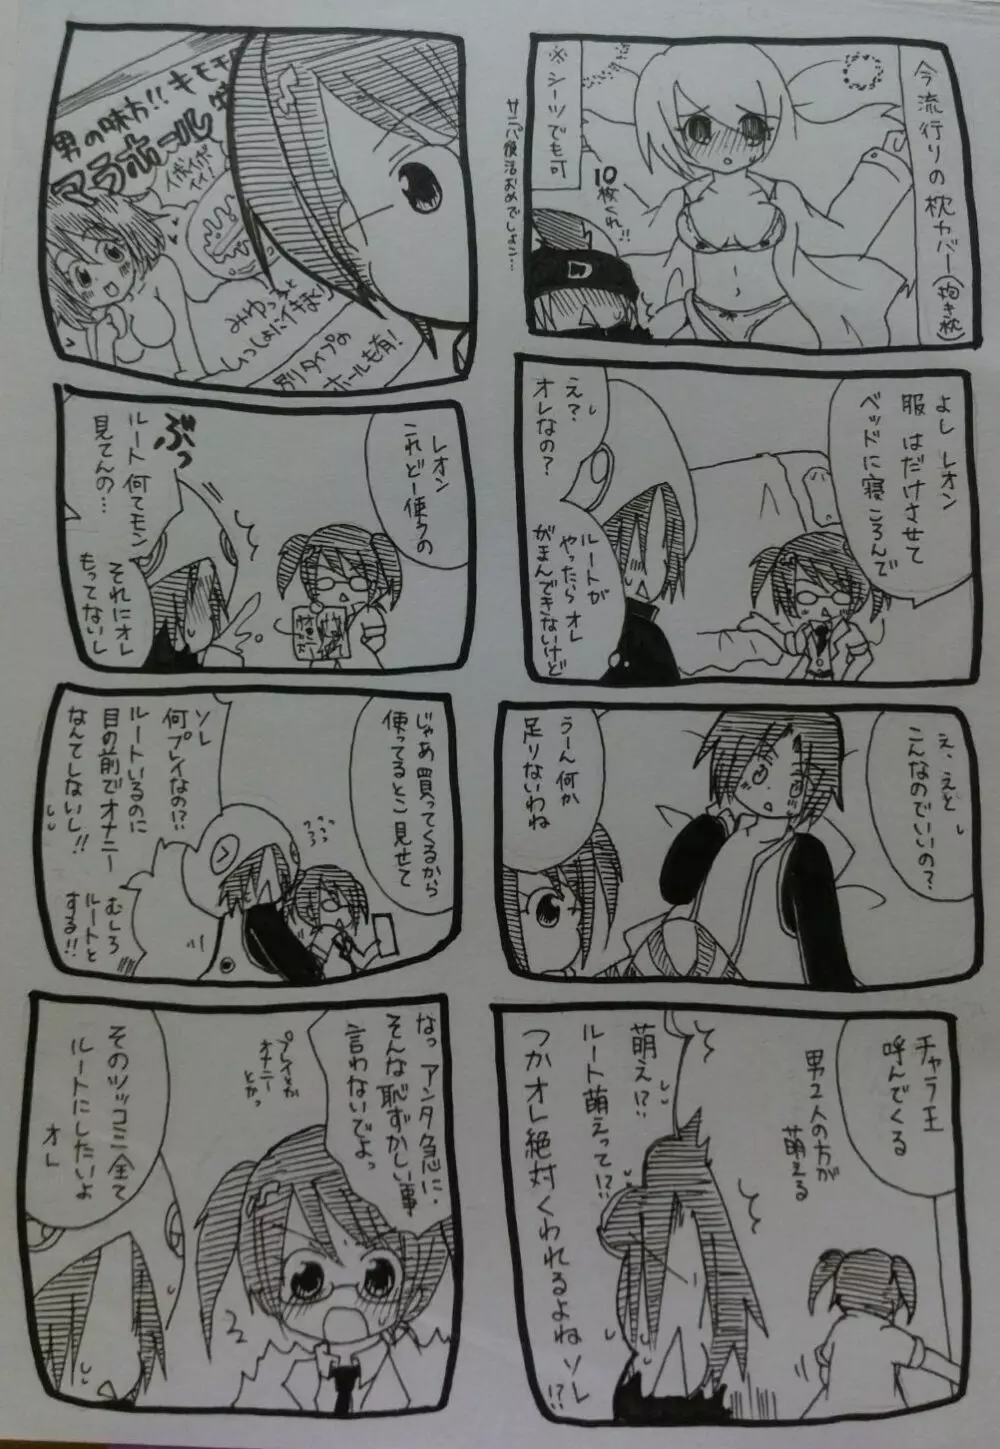 今流行りの枕カバー(抱き枕)
※シーツでも可
10枚くれ!!
サニパ復活おめでしょこ…
よし レオン
服 はだけさせて
ベッドに寝ころんで
え?
オレなの?
ルートが
やったら オレ
がまんできないけど
え、えと
こんなのでいいの?
うーん 何か
足りないわね
チャラ王
呼んでくる
男2人の方が
萌える
萌え!?
ルート萌えって!?
つかオレ絶対くわれるよね ソレ!?
男の味方!! キモ
アラホール
イボイボ
イイ!
いっしょにイキまく
別タイプの
ホールも有!
レオン
これどー使うの
ぶっ
ルート 何てモン
見てんの…
それにオレ
もってないし
じゃあ 買ってくるから
使ってるとこ 見せて
ソレ
何プレイなの!?
ルートいるのに
目の前でオナニー
なんてしないし!!
むしろ
ルートと
する!!
なっ アンタ急に
そんな恥ずかしい事
言わないでよっ
プレイとか
オナニー
とかっ
そのツッコミ全て
ルートにしたいよ
オレ